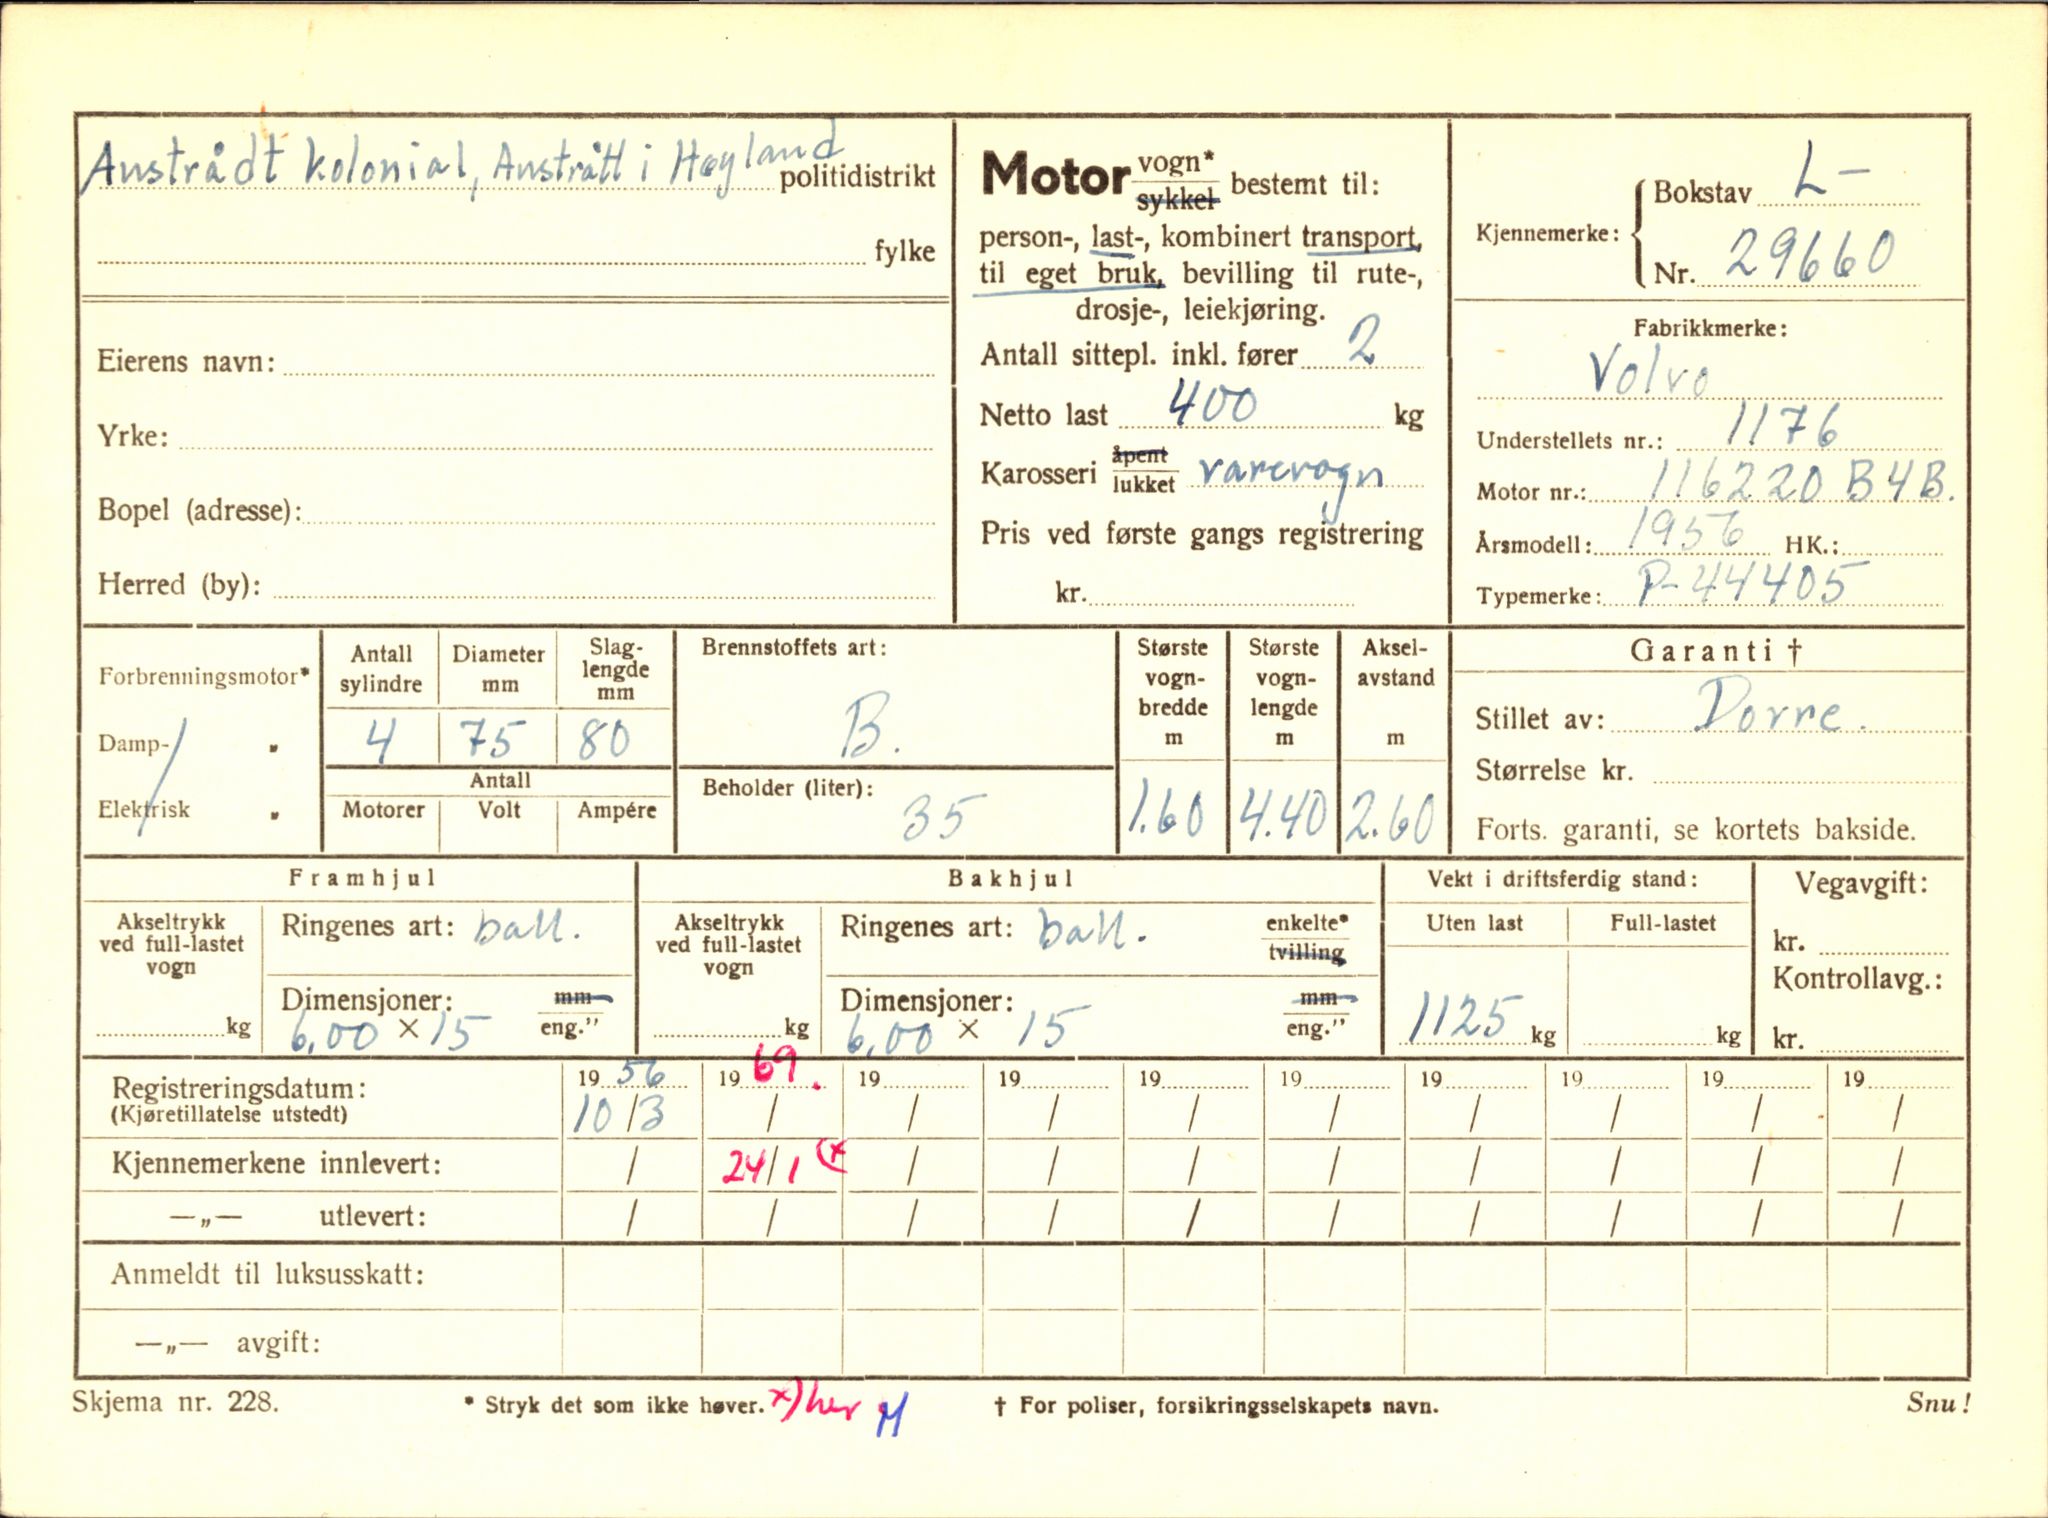 Austrådt kolonial, Austrått i Høyland politidistrikt
fylke
Eierens navn:
Yrke:
Bopel (adresse):
Herred (by):
Motor vogn* sykkel bestemt til:
person-, last-, kombinert transport,
til eget bruk, bevilling til rute-,
drosje-, leiekjøring.
Antall sittepl. inkl. fører 2
Netto last 400 kg
Karosseri åpent lukket varevogn
Pris ved første gangs registrering
kr.
Kjennemerke: Bokstav L-
Nr. 29660
Fabrikkmerke:
Volvo
Understellets nr.: 1176
Motor nr.: 116220 B4B.
Årsmodell: 1956 HK.:
Typemerke: P-44405
Forbrenningsmotor*
Damp- "
Elektrisk "
Antall sylindre
Diameter mm
Slag-lengde mm
4 75 80
Antall
Motorer Volt Ampére
Brennstoffets art:
B.
Beholder (liter):
35
Største vogn-bredde m
1.60
Største vogn-lengde m
4.40
Aksel-avstand m
2.60
Garanti †
Stillet av: Dovre.
Størrelse kr.
Forts. garanti, se kortets bakside.
Framhjul
Akseltrykk ved full-lastet vogn
kg
Ringenes art: ball.
Dimensjoner: mm
6,00 × 15 eng."
Bakhjul
Akseltrykk ved full-lastet vogn
kg
Ringenes art: ball. enkelte* tvilling
Dimensjoner: mm
6,00 × 15 eng."
Vekt i driftsferdig stand:
Uten last Full-lastet
1125 kg kg
Vegavgift:
kr.
Kontrollavg.:
kr.
Registreringsdatum: 19 56 19 69. 19 19 19 19 19 19 19 19
(Kjøretillatelse utstedt) 10/3 / / / / / / / / /
Kjennemerkene innlevert: / 24/1 (x / / / / / / / /
—„— utlevert: / / / / / / / / / /
Anmeldt til luksusskatt:
—„— avgift:
Skjema nr. 228. * Stryk det som ikke høver. x) her M † For poliser, forsikringsselskapets navn. Snu!